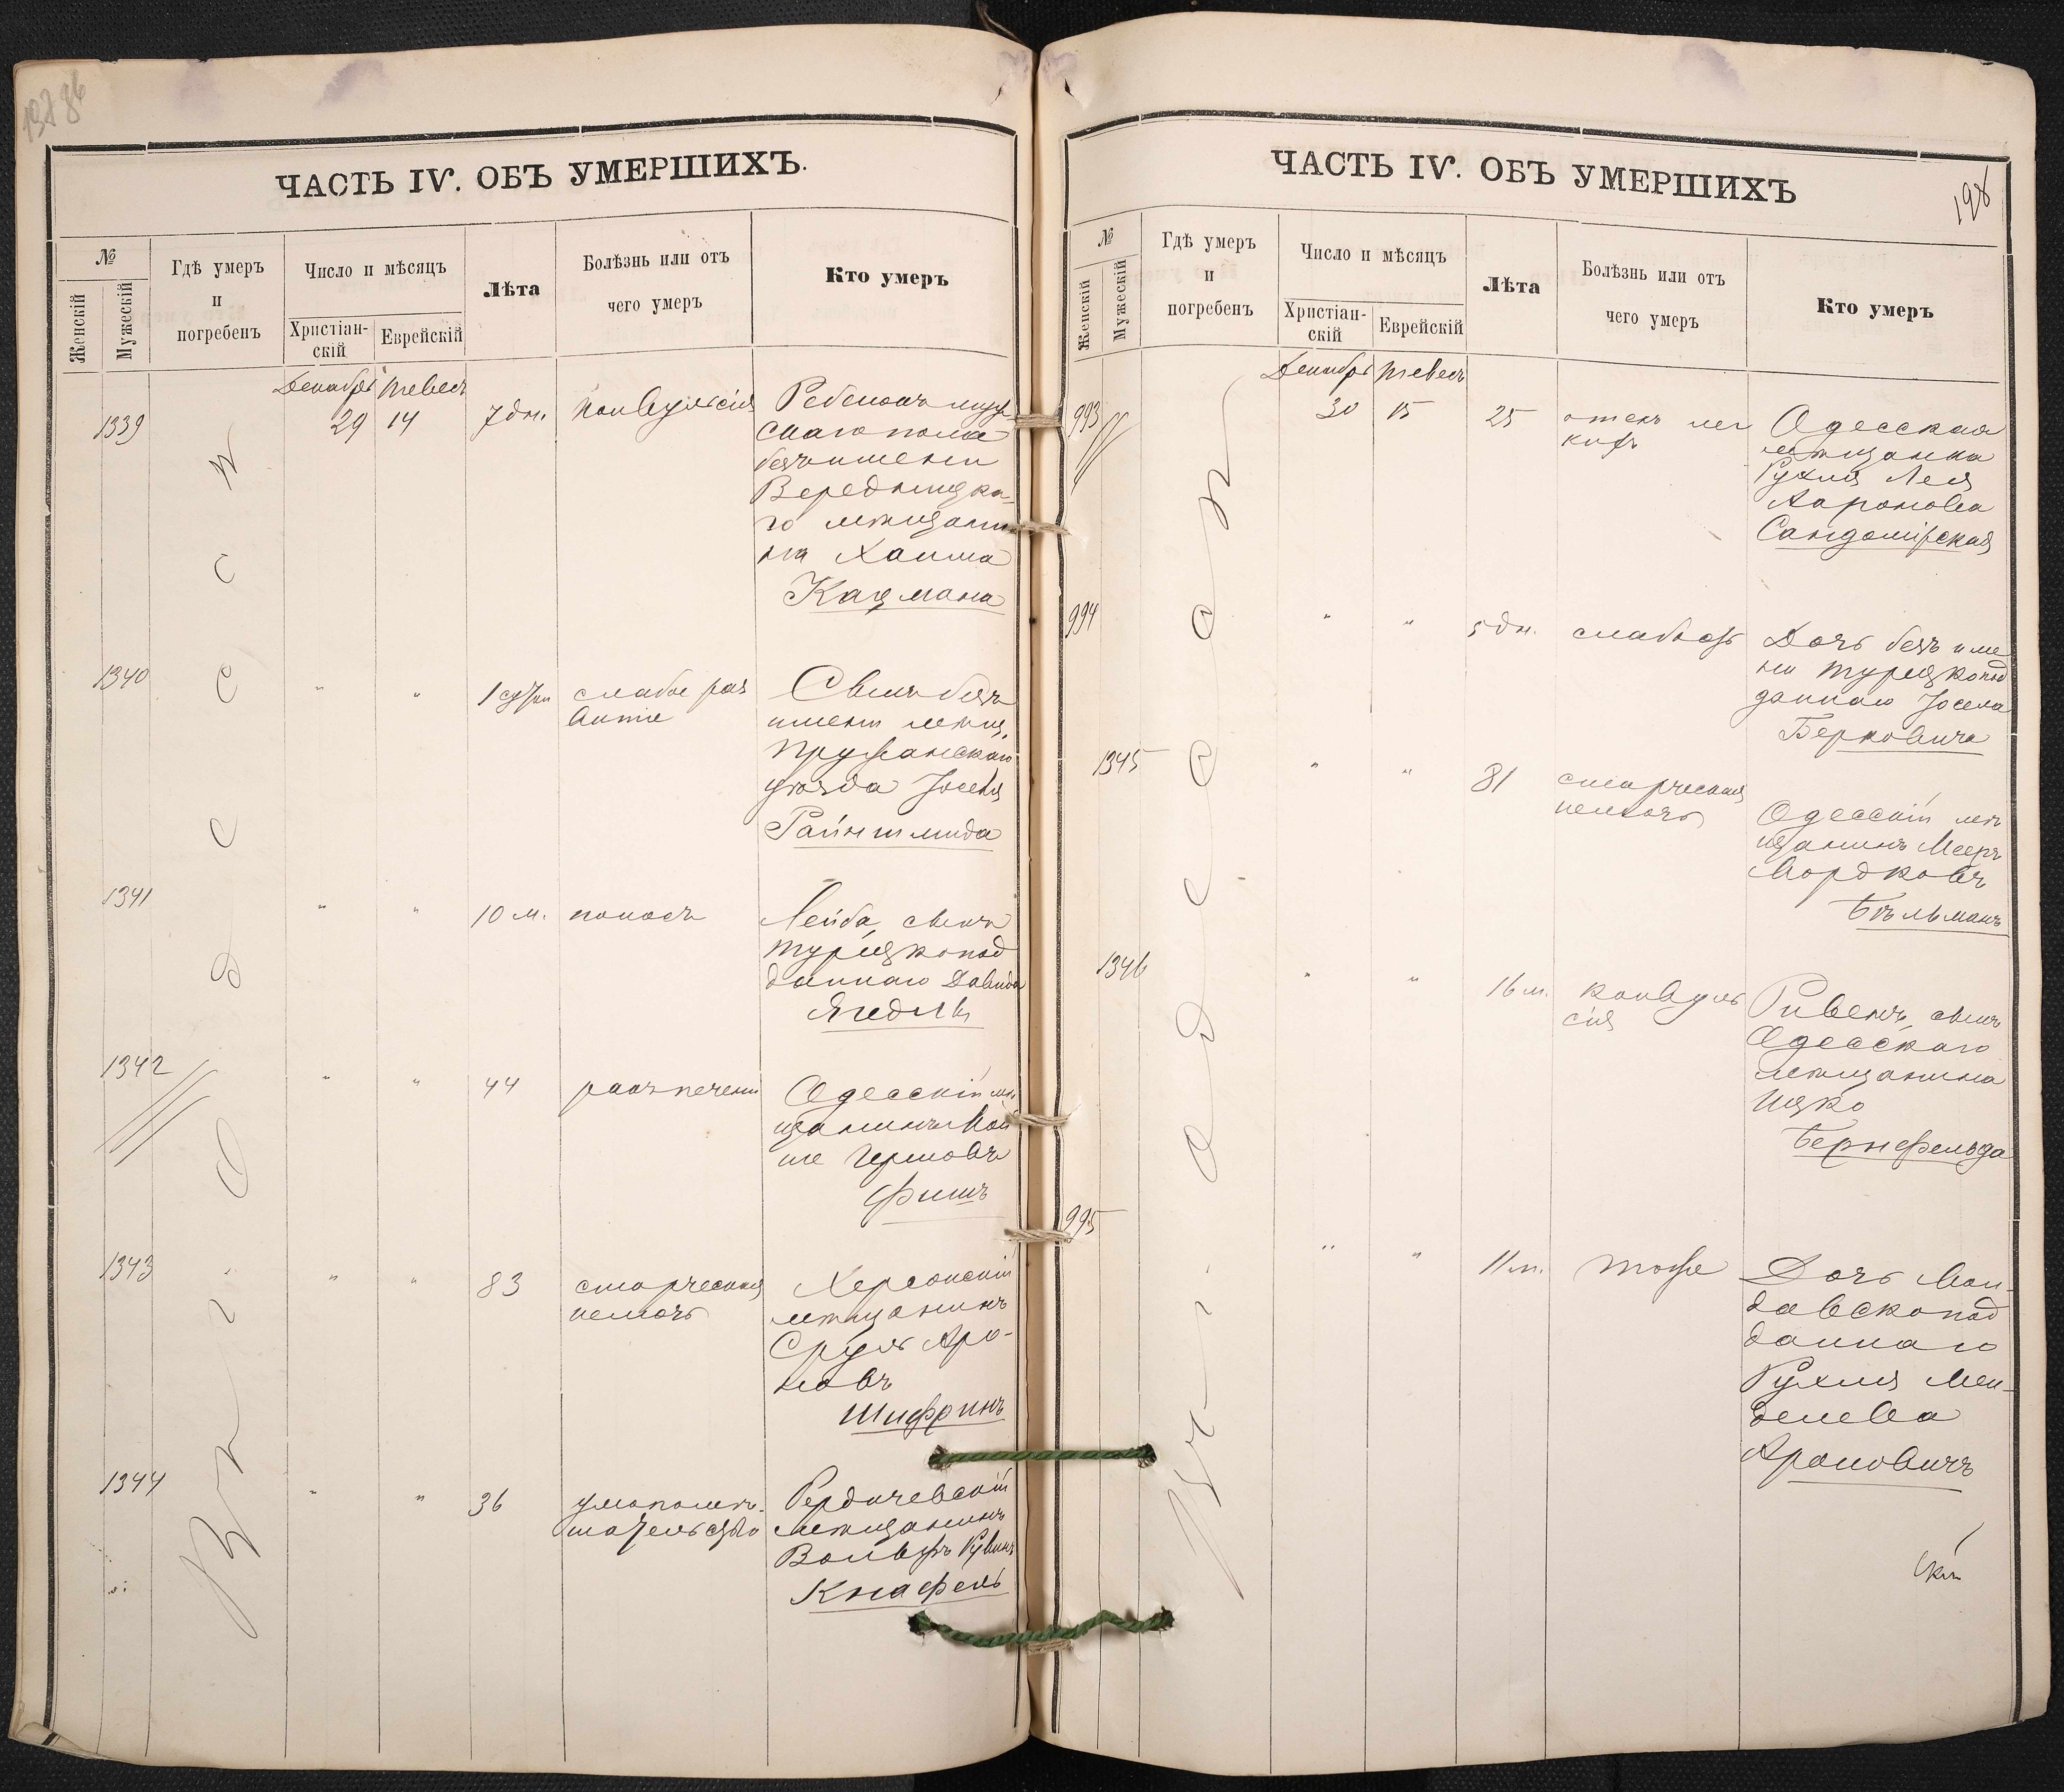 ЧАСТЬ IV. ОБЪ УМЕРШИХЪ.
№
Женскій
Мужескій
Гдѣ умеръ
и
погребенъ
Число и мѣсяцъ
Христіан-
скій
Еврейскій
Лѣта
Болѣзнь или отъ
чего умеръ
Кто умеръ
Въ г. Одессѣ
Декабрь Тевесъ
1339
29 14
7 дн.
конвульсія
Ребенокъ муж
скаго пола
безъ имени
го мѣщани
на Хаима
Кацмана
1340
" "
1 сутки
слабое раз
витіе
Сынъ безъ
имени мѣщ.
Пружанскаго
уѣзда Іосефа
Райншмида
1341
" "
10 м.
поносъ
Лейба, сынъ
турецкопод
даннаго Давида
1342
" "
44
ракъ печени
Одесскій мѣ
щанинъ Мой
ше Гершовъ
Фишъ
1343
" "
83
старческая
немочь
Херсонскій
мѣщанинъ
Сруль Аро-
новъ
Шифринъ
1344
" "
36
умопомѣ-
шательство
Бердичевскій
мѣщанинъ
Вольфъ Рувин
Кнафель
ЧАСТЬ IV. ОБЪ УМЕРШИХЪ
№
Женскій
Мужескій
Гдѣ умеръ
и
погребенъ
Число и мѣсяцъ
Христіан-
скій
Еврейскій
Лѣта
Болѣзнь или отъ
чего умеръ
Кто умеръ
Въ г. Одессѣ
Декабрь Тевесъ
993
30 15
25
отекъ лег
кихъ
Одесская
мѣщанка
Рухля Лея
Ааронова
Сандомірская
994
" "
5 дн.
слабость
Дочь безъ име
ни турецкопод
даннаго Іосела
Берковича
1345
" "
81
старческая
немочь
Одесскій мѣ
щанинъ Мееръ
Мордковъ
Бѣльманъ
1346
" "
16 м.
конвуль
сія
Ривенъ, сынъ
Одесскаго
мѣщанина
Ицко
Бернфельда
995
" "
11 м.
тоже
Дочь Мол-
давскопод
даннаго
Рухля Мен-
делева
Ароновичъ